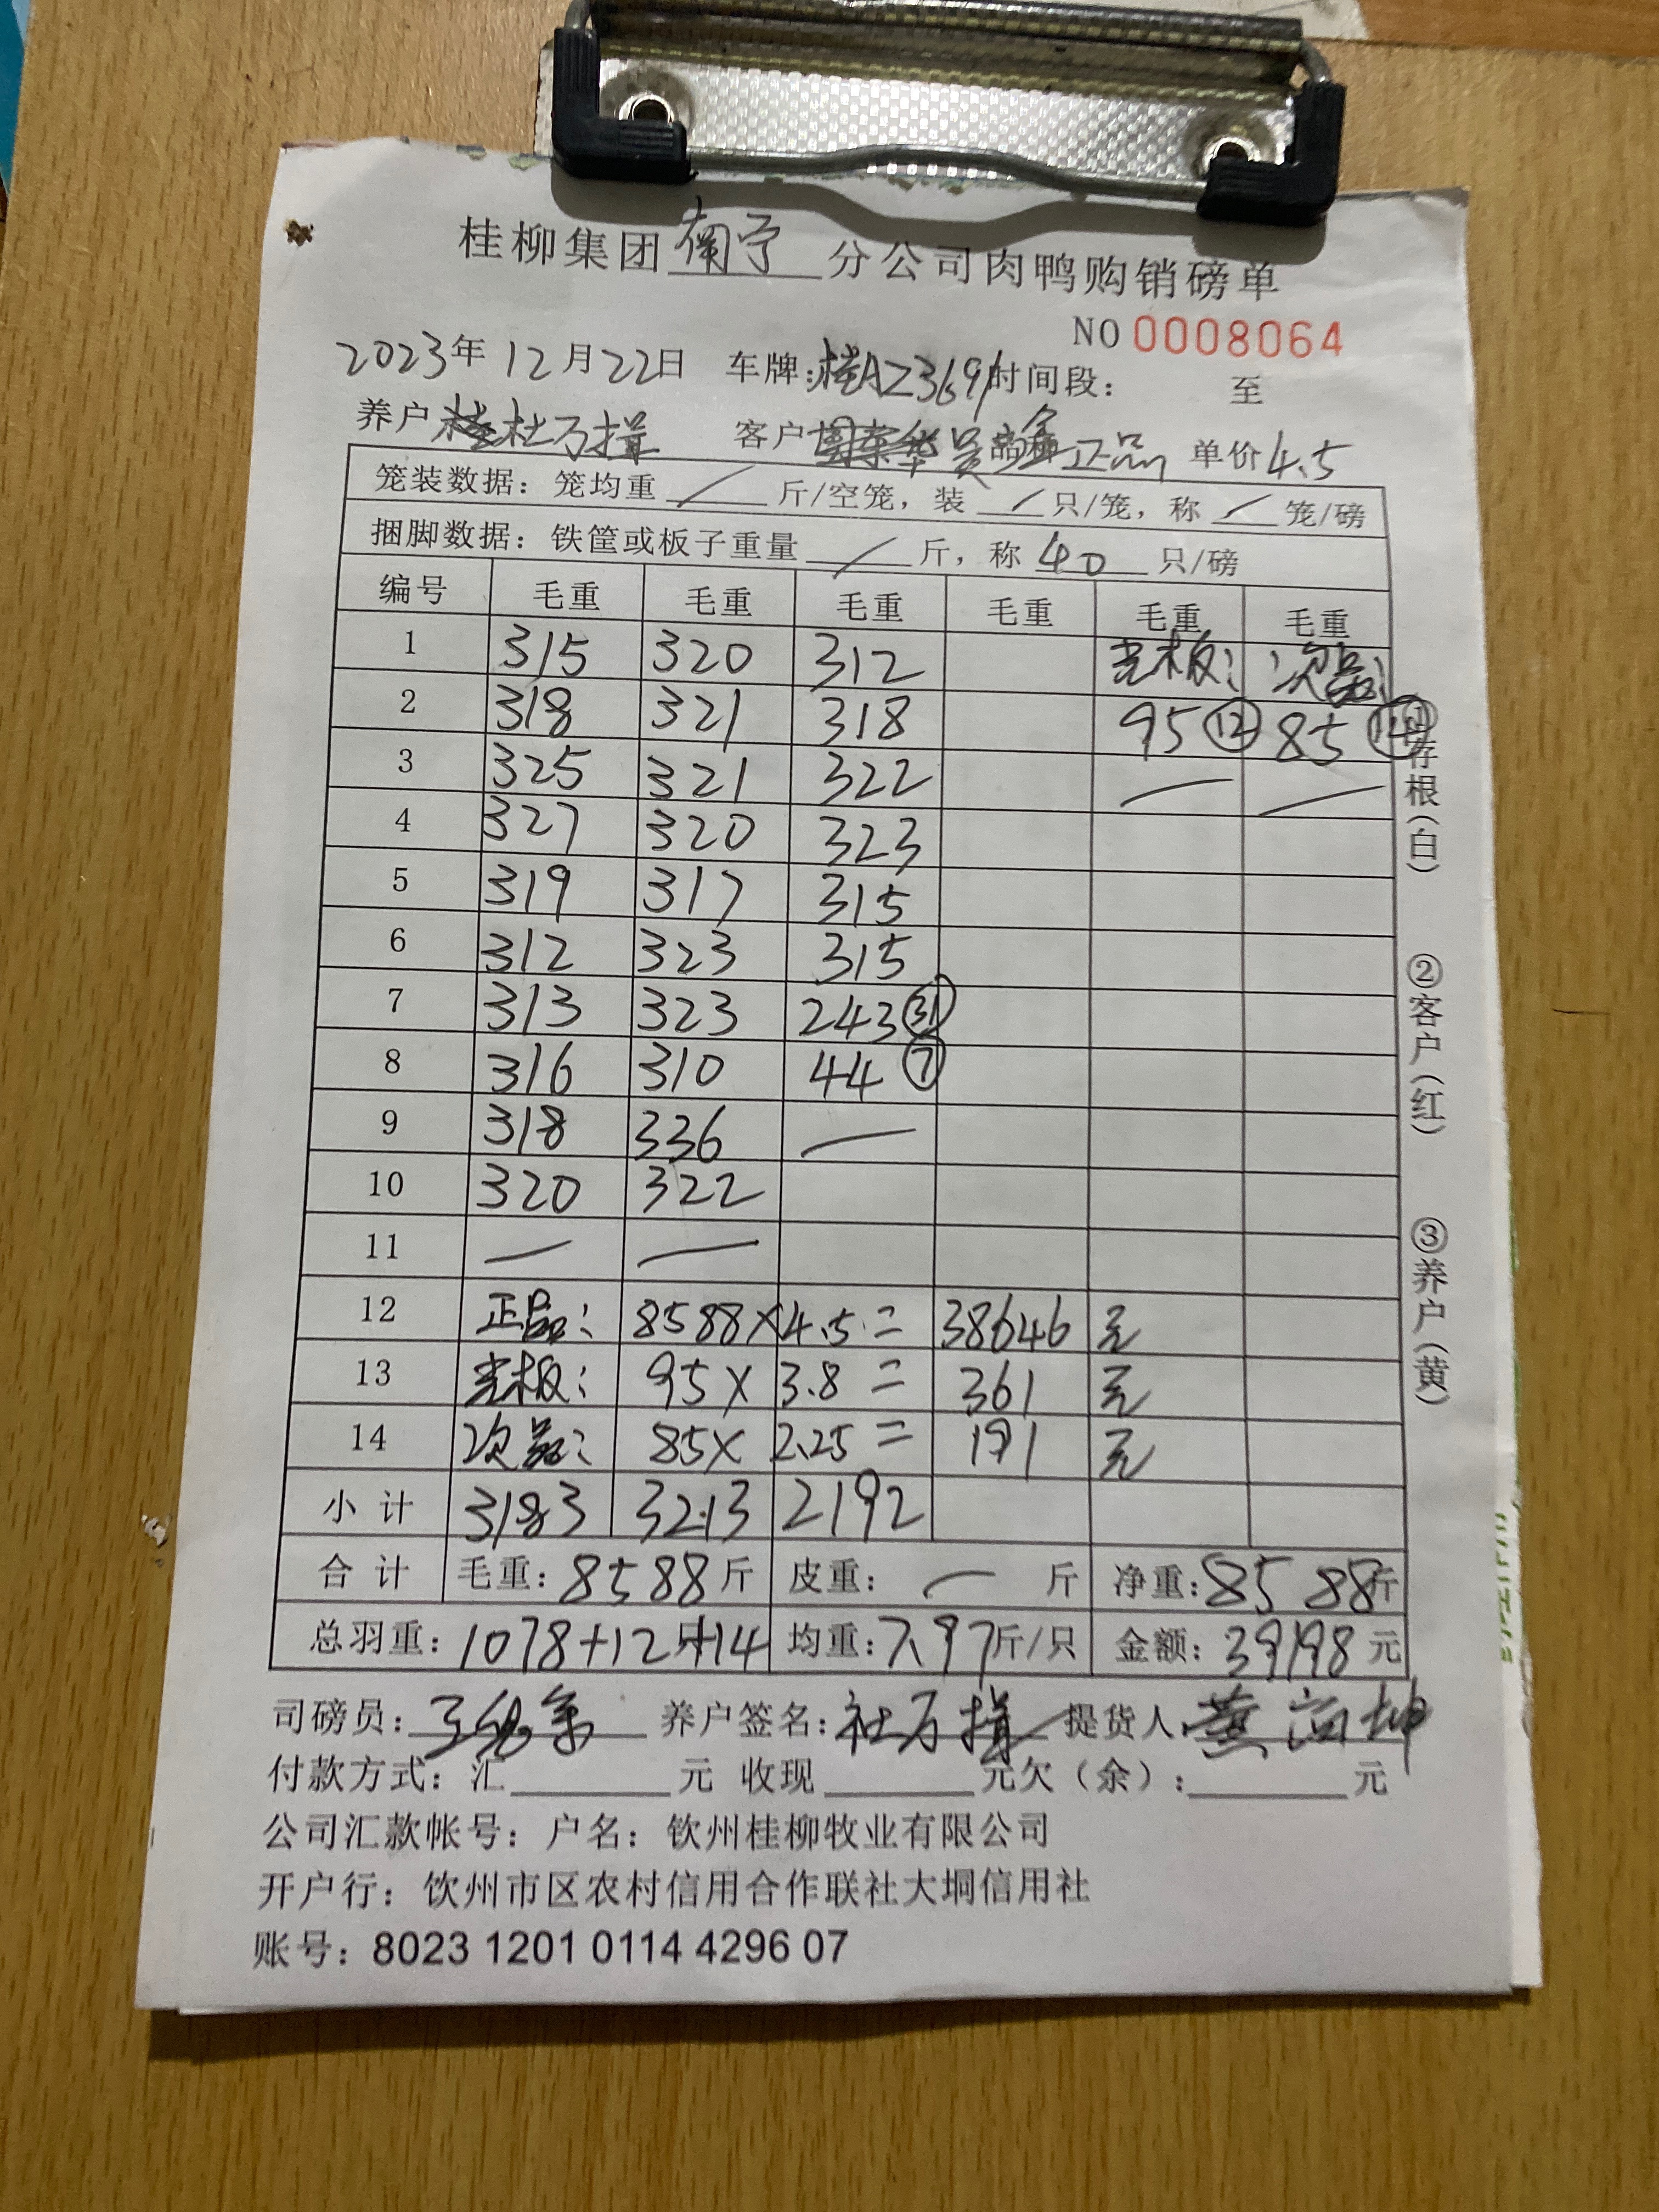 桂柳集团南宁分公司肉鸭购销磅单
NO 0008064
2023年12月22日 车牌:桂AZ3691时间段: 至
养户 杜万揖 客户 正品 单价4.5
笼装数据: 笼均重 / 斤/空笼, 装 / 只/笼, 称 / 笼/磅
捆脚数据: 铁筐或板子重量 / 斤, 称 40 只/磅
编号 毛重 毛重 毛重 毛重 毛重 毛重
1 315 320 312 光板: 次品:
2 318 321 318 95 ⑫ 85 ⑭
3 325 321 322 — —
4 327 320 323
5 319 317 315
6 312 323 315
7 313 323 243 ㉛
8 316 310 44 ⑦
9 318 336 —
10 320 322
11 — —
12 正品: 8588×4.5= 38646 元
13 光板: 95× 3.8= 361 元
14 次品: 85× 2.25= 191 元
小计 3183 3213 2192
合计 毛重: 8588斤 皮重: — 斤 净重: 8588斤
总羽重: 1078+12+14 均重: 7.97斤/只 金额: 39198元
司磅员: 养户签名: 杜万揖 提货人:
付款方式: 汇 元 收现 元欠(余): 元
公司汇款帐号: 户名: 钦州桂柳牧业有限公司
开户行: 钦州市区农村信用合作联社大垌信用社
账号: 8023 1201 0114 4296 07
①存根(白)
②客户(红)
③养户(黄)